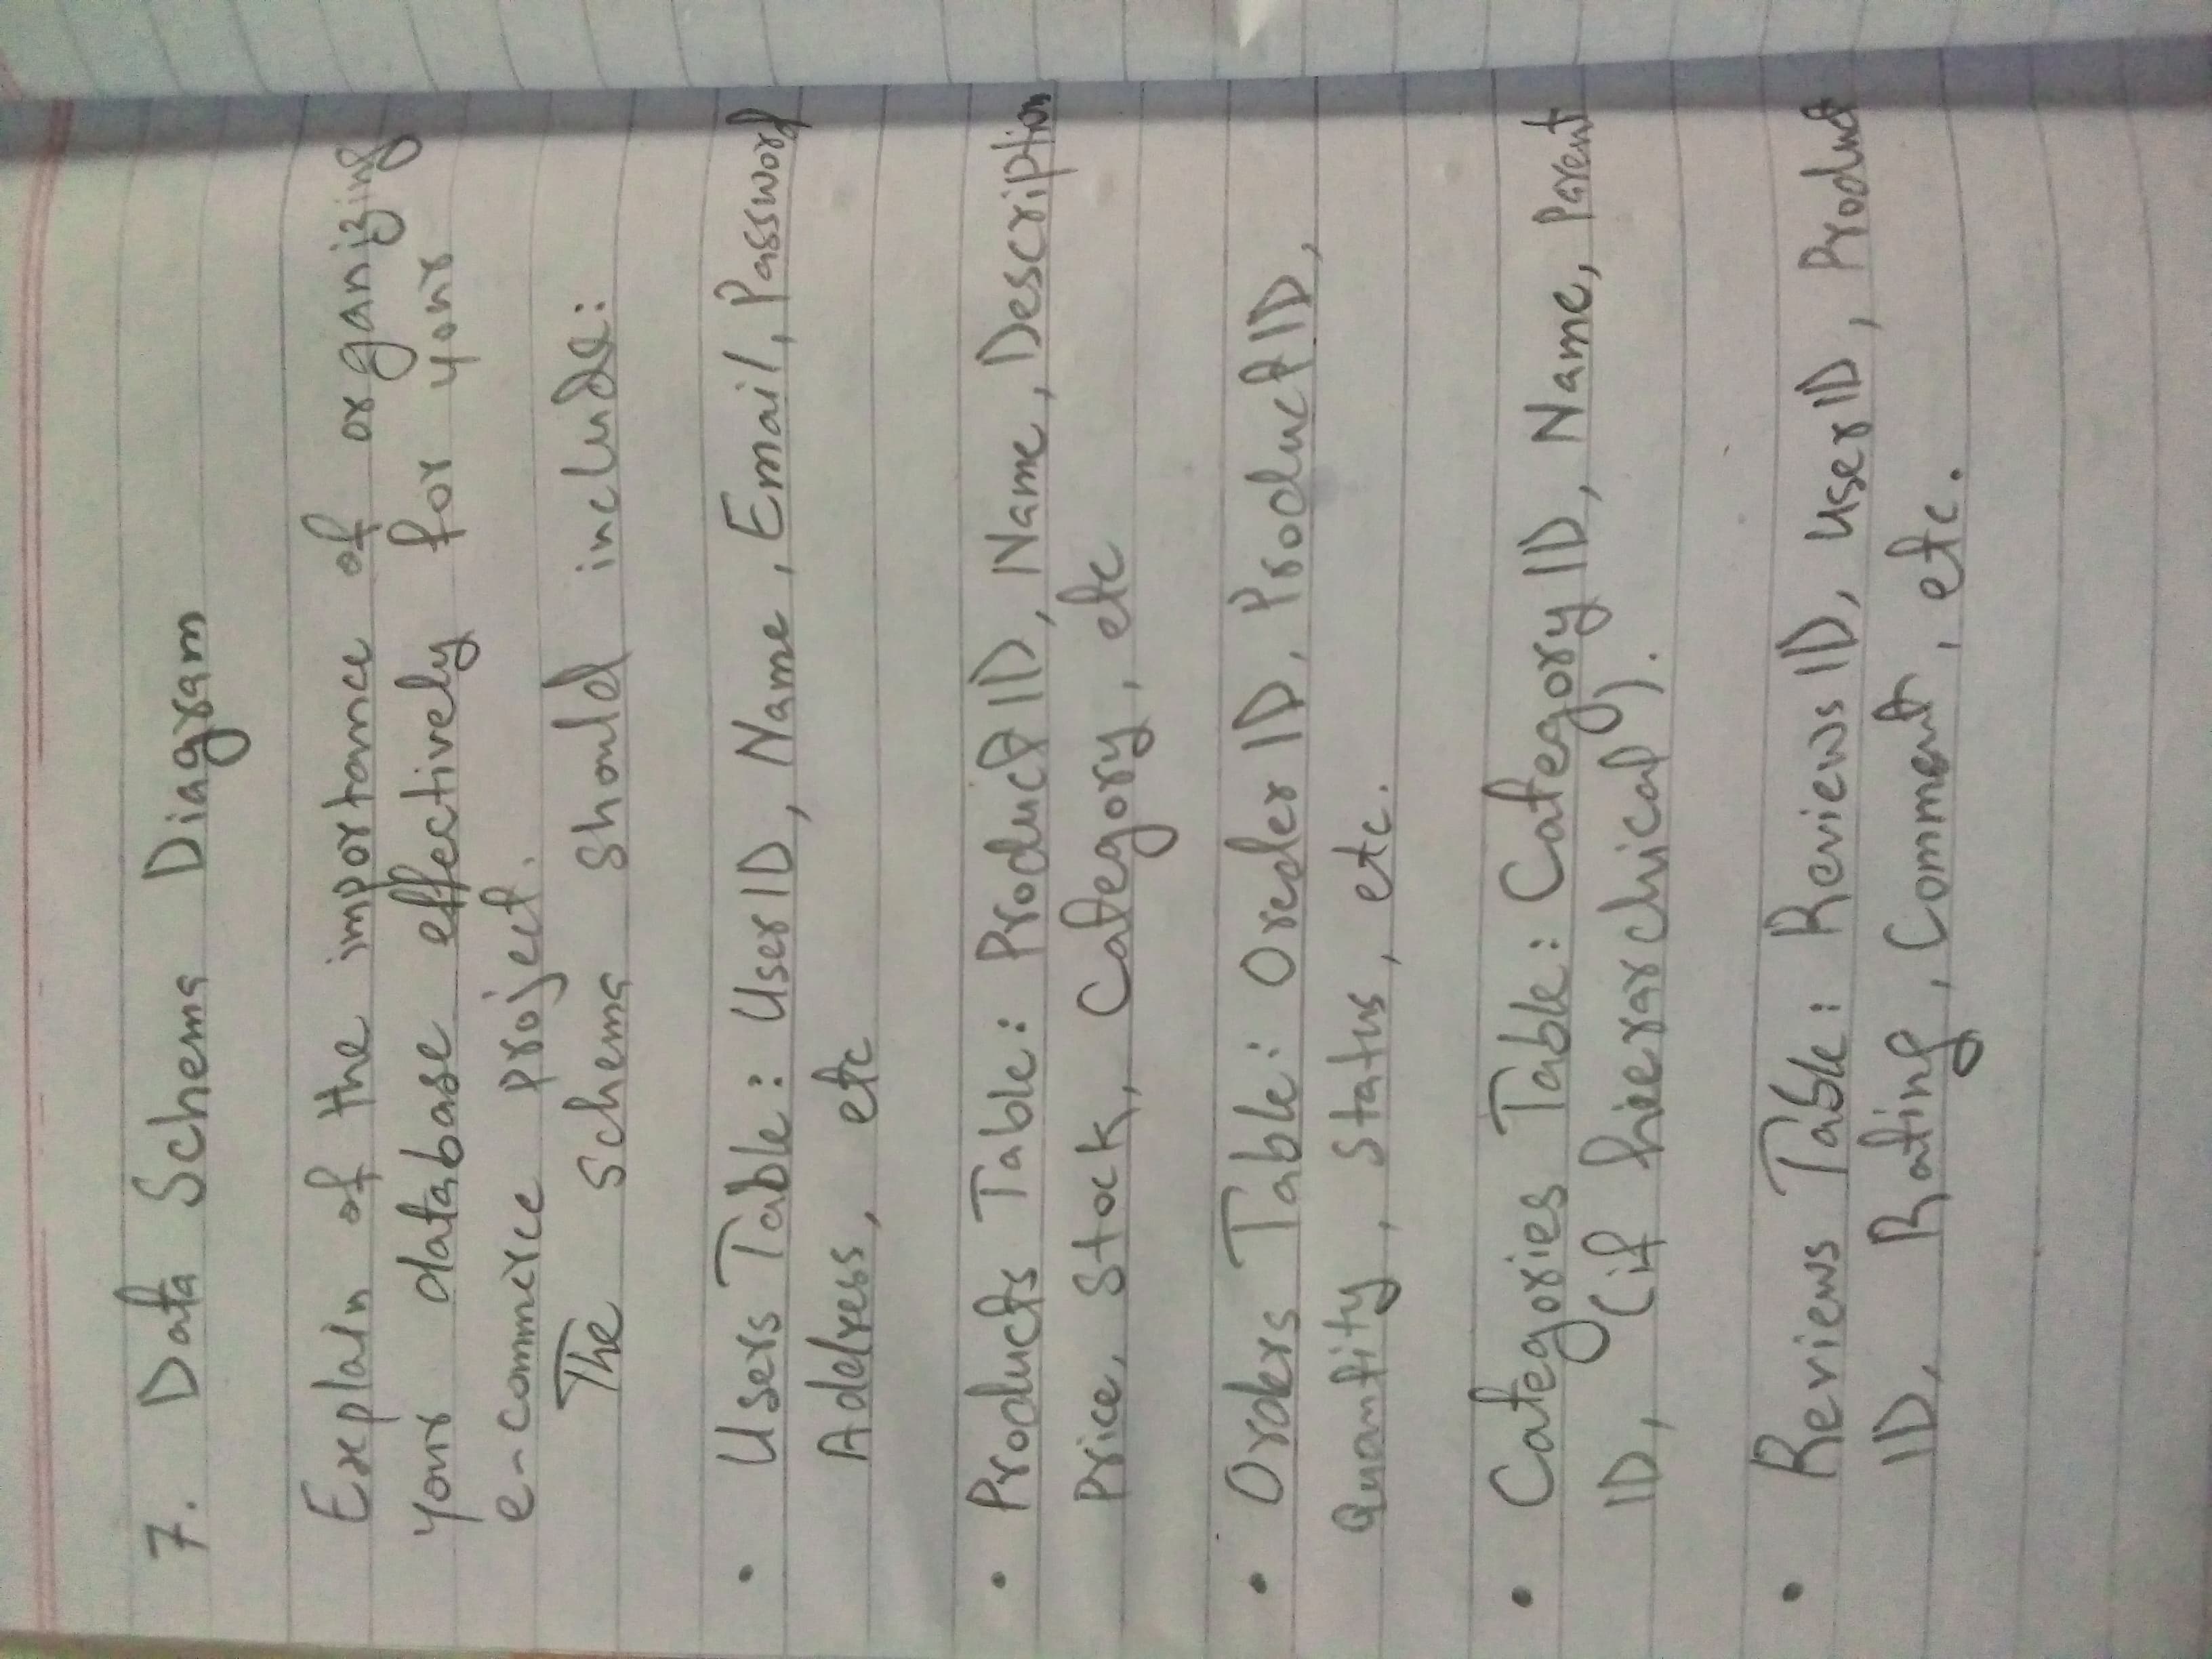 7. Data Schema Diagram
Explain of the importance of or organizing
your database effectively for your
e-commerce project.
The Schema should include:
• Users Table: User ID, Name, Email, Password
Address, etc
• Products Table: Product ID, Name, Description
Price, Stock, Category, etc
• Orders Table: Oreder ID, Product ID,
Quantity, Status, etc.
• Categories Table: Category ID, Name, Parent
ID, (if hierarchical).
• Reviews Table: Reviews ID, User ID, Product
ID, Rating, Comment, etc.